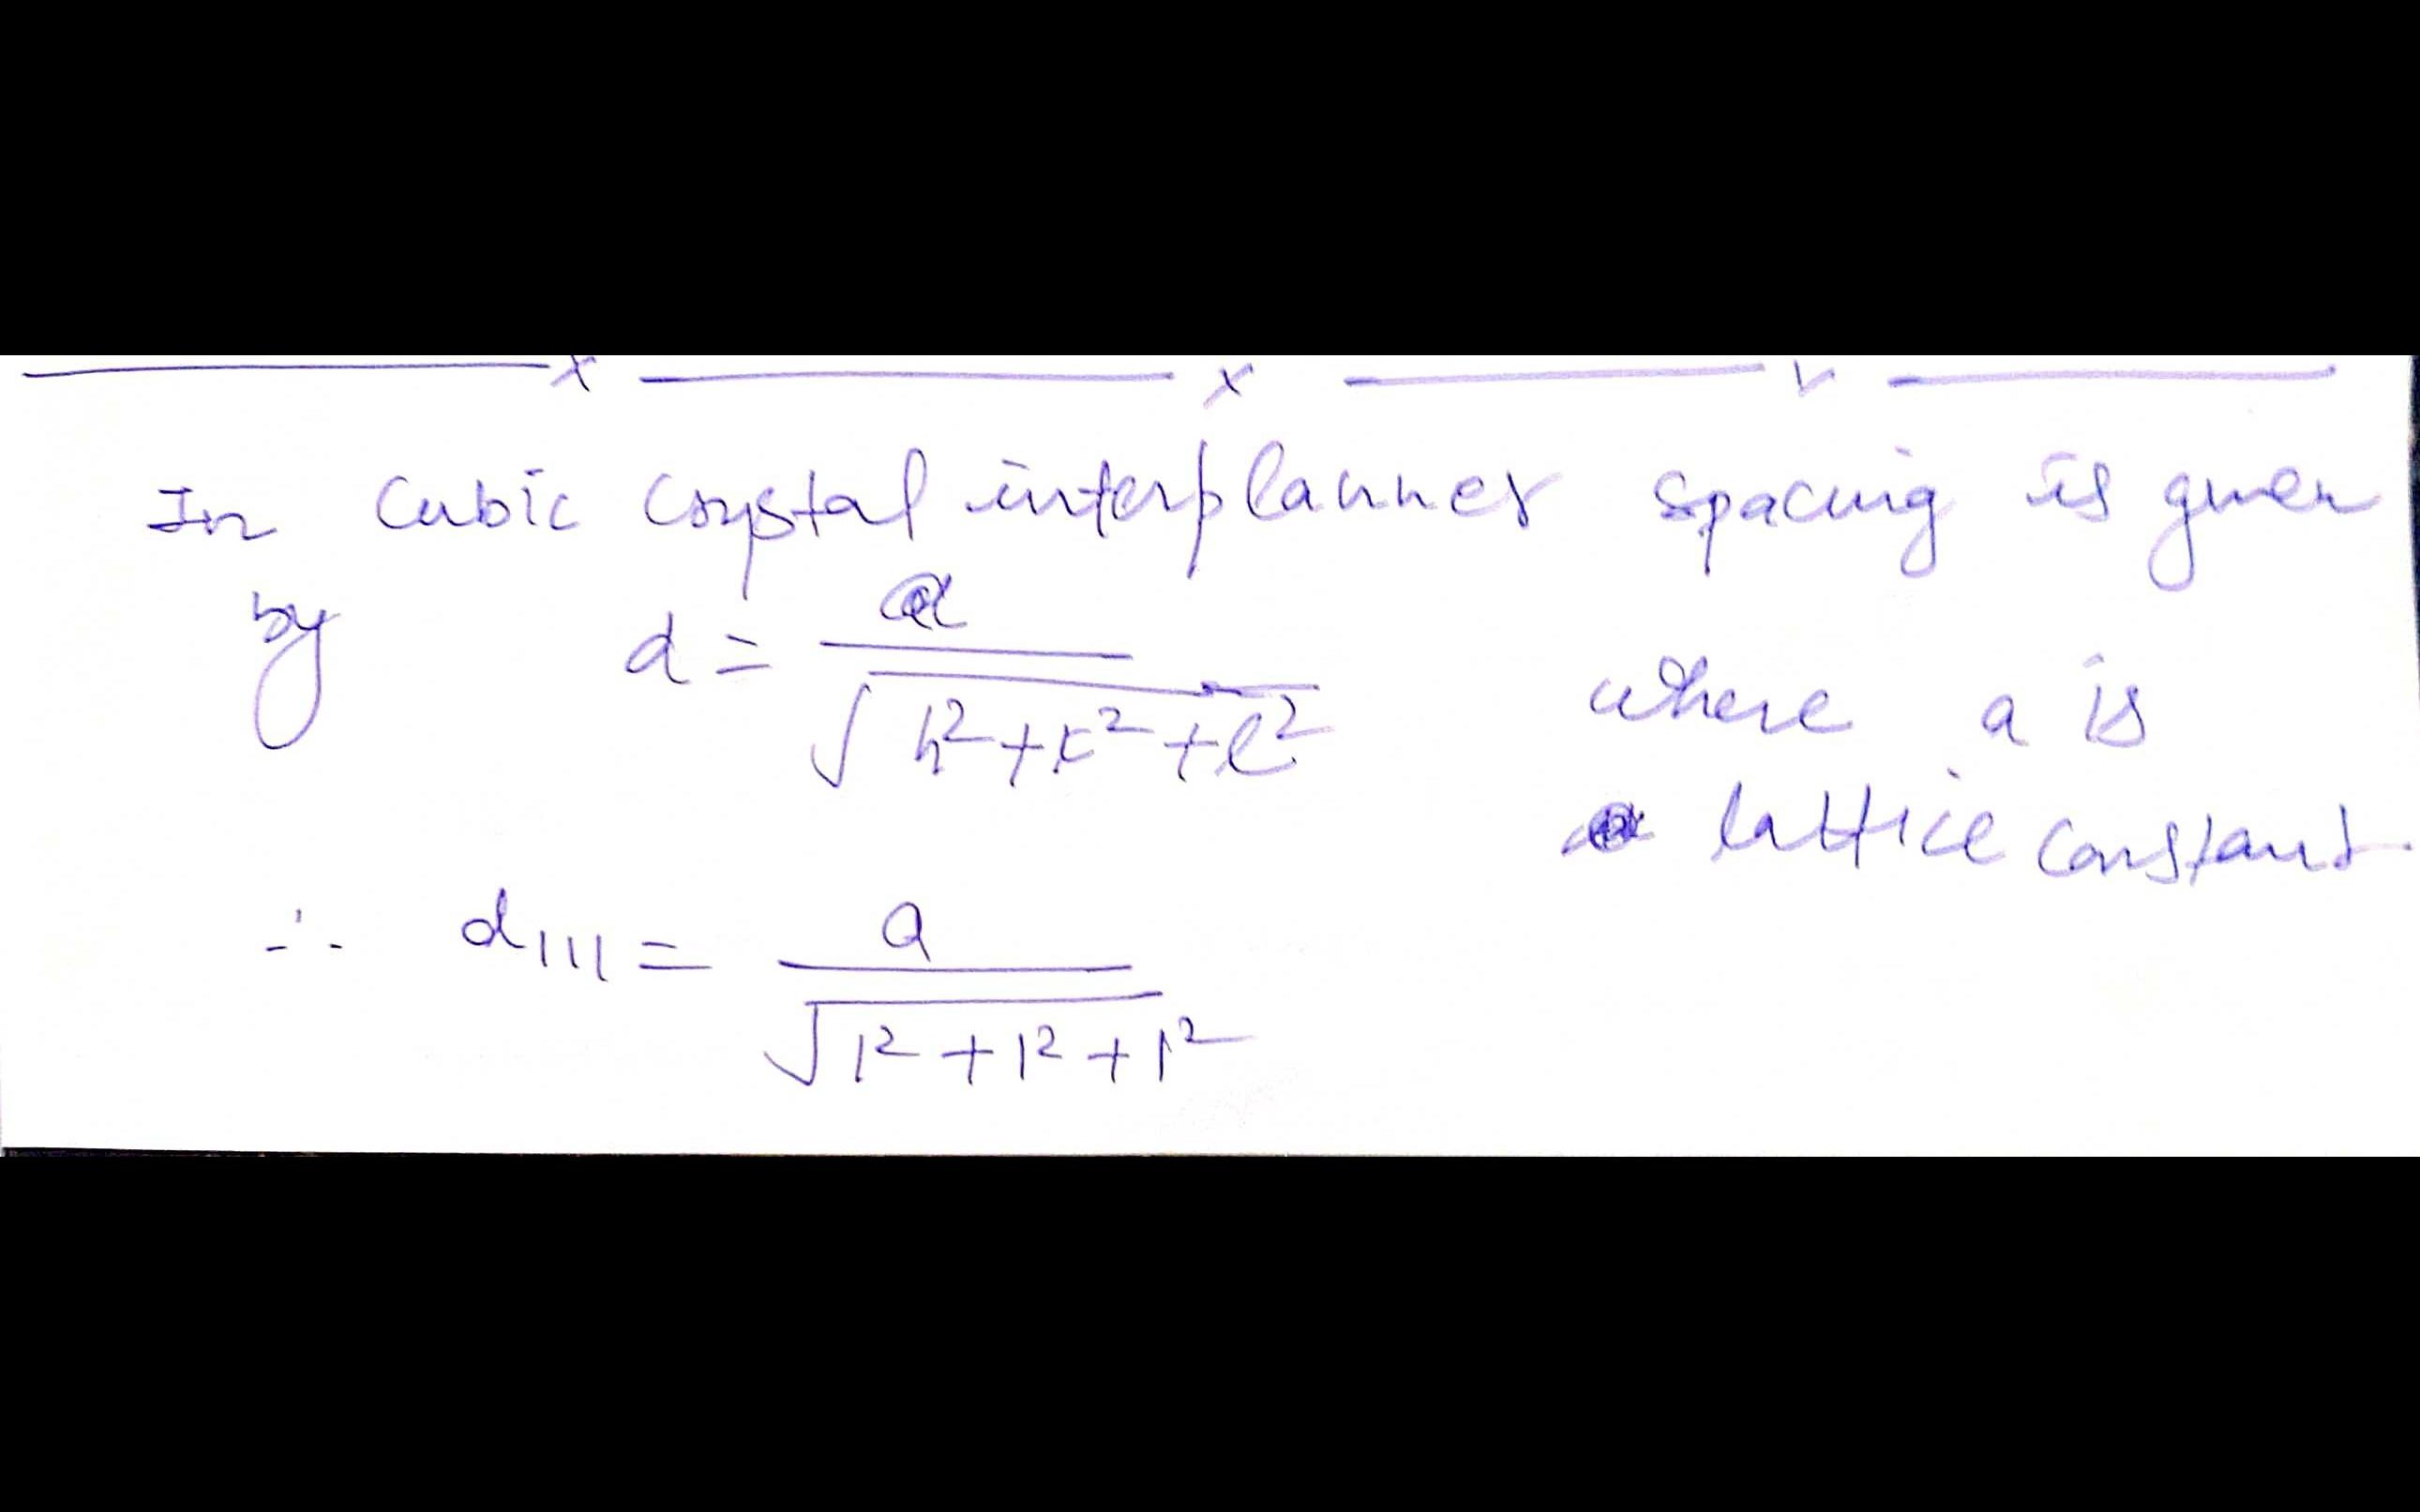 In cubic crystal interplanner spacing is given
by d = a / √(h² + k² + l²) where a is
lattice constant.
∴ d111 = a / √(1² + 1² + 1²)